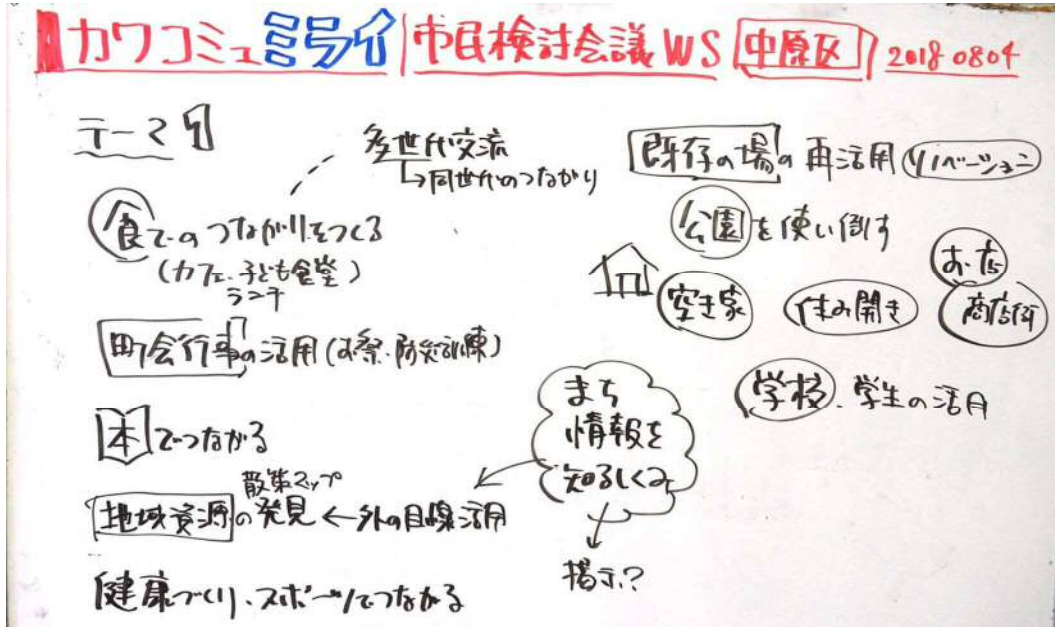 カワコミュミライ 市民検討会議WS 中原区 20180804
テーマ1
多世代交流
↳同世代のつながり
食でのつながりをつくる
(カフェ・子ども食堂)
ランチ
町会行事の活用(お祭・防災訓練)
本でつながる
散策マップ
地域資源の発見←外の目線活用
健康づくり、スポーツでつながる
既存の場の再活用 リノベーション
公園を使い倒す
お店
空き家 住み開き 商店街
学校、学生の活用
まち
情報を
知るしくみ
掲示?